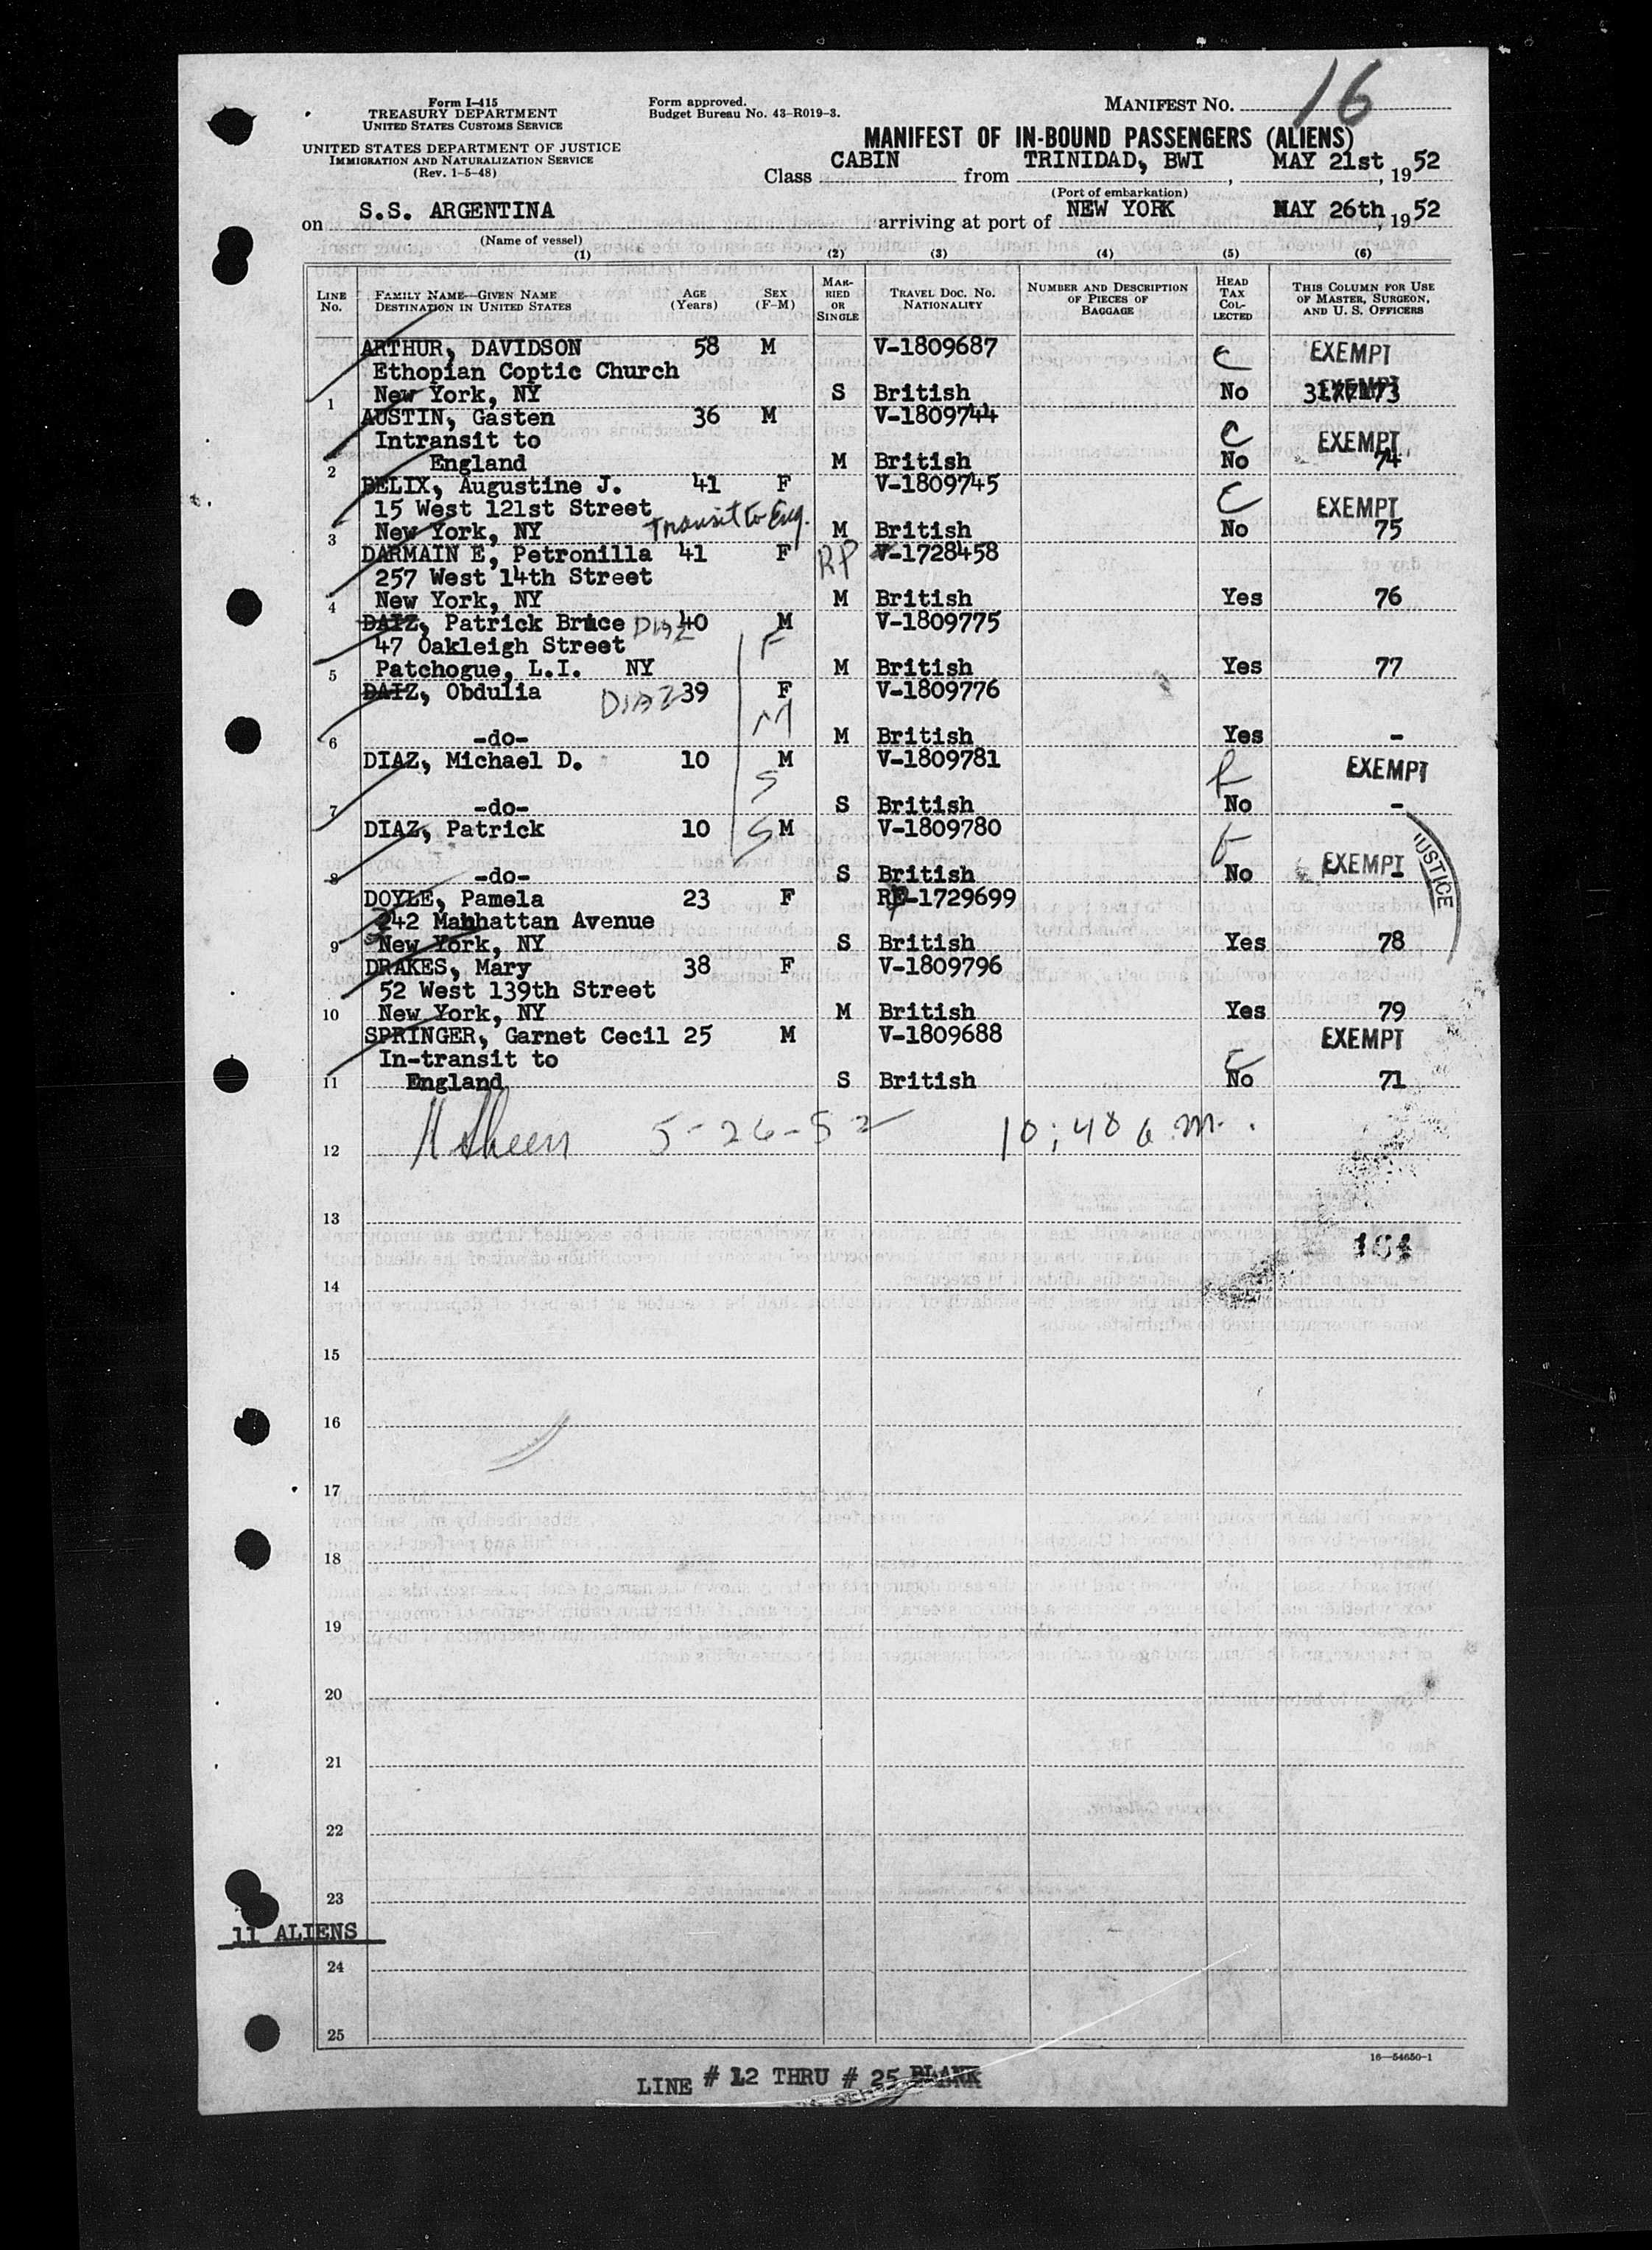 16
Form I-415
TREASURY DEPARTMENT
UNITED STATES CUSTOMS SERVICE
UNITED STATES DEPARTMENT OF JUSTICE
IMMIGRATION AND NATURALIZATION SERVICE
(Rev. 1-5-48)
Form approved.
Budget Bureau No. 43-R019-3.
MANIFEST NO.
MANIFEST OF IN-BOUND PASSENGERS (ALIENS)
Class CABIN from TRINIDAD, BWI, MAY 21st, 1952
(Port of embarkation)
on S.S. ARGENTINA arriving at port of NEW YORK MAY 26th, 1952
(Name of vessel)
(1) (2) (3) (4) (5) (6)
LINE NO. FAMILY NAME—GIVEN NAME DESTINATION IN UNITED STATES AGE (Years) SEX (F-M) MARRIED OR SINGLE TRAVEL DOC. NO. NATIONALITY NUMBER AND DESCRIPTION OF PIECES OF BAGGAGE HEAD TAX COLLECTED THIS COLUMN FOR USE OF MASTER, SURGEON, AND U. S. OFFICERS
ARTHUR, DAVIDSON 58 M V-1809687 C EXEMPT
Ethopian Coptic Church
1 New York, NY S British No 3177173 EXEMPT
AUSTIN, Gasten 36 M V-1809744 C
Intransit to EXEMPT
2 England M British No 74
BELIX, Augustine J. 41 F V-1809745 C
15 West 121st Street Transit to Eng. EXEMPT
3 New York, NY M British No 75
DARMAIN E, Petronilla 41 F RP V-1728458
257 West 14th Street
4 New York, NY M British Yes 76
DAIZ, Patrick Bruce DIAZ 40 M V-1809775
47 Oakleigh Street F
5 Patchogue, L.I. NY M British Yes 77
DAIZ, Obdulia DIAZ 39 F V-1809776
M
6 -do- M British Yes -
DIAZ, Michael D. 10 M V-1809781 EXEMPT
S
7 -do- S British No -
DIAZ, Patrick 10 S M V-1809780
EXEMPT
8 -do- S British No
USTICE
DOYLE, Pamela 23 F RP-1729699
342 Manhattan Avenue
9 New York, NY S British Yes 78
DRAKES, Mary 38 F V-1809796
52 West 139th Street
10 New York, NY M British Yes 79
SPRINGER, Garnet Cecil 25 M V-1809688 EXEMPT
In-transit to C
11 England S British No 71
5-26-52 10:48 a.m.
12
13
14
15
16
17
18
19
20
21
22
23
11 ALIENS
24
25
16—54650-1
LINE # 12 THRU # 25 BLANK